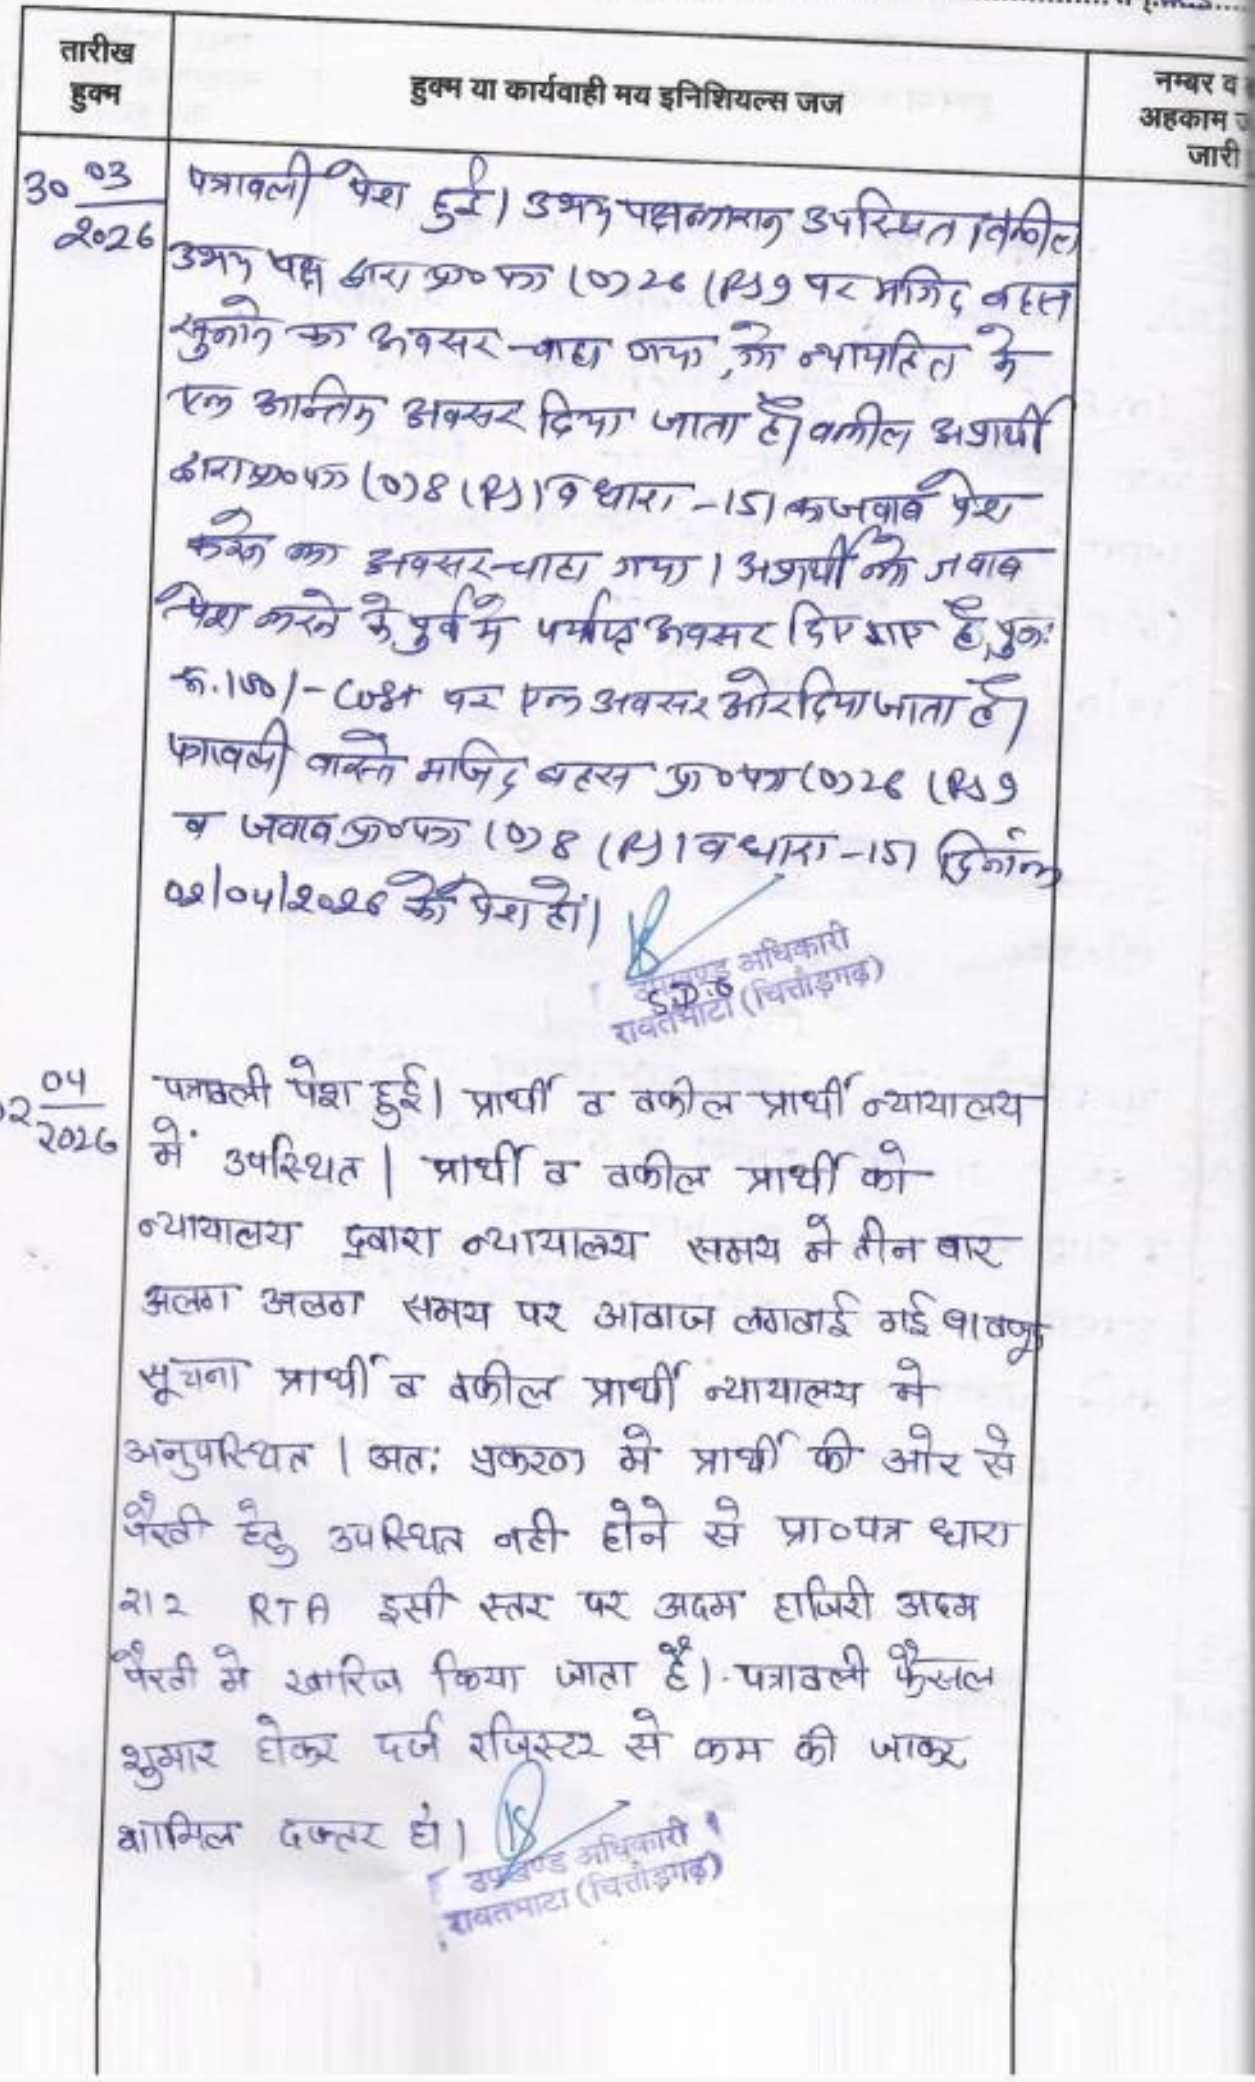 तारीख
हुक्म
हुक्म या कार्यवाही मय इनिशियल्स जज
नम्बर व
अहकाम
जारी
30 03
2026
पत्रावली पेश हुई। उभय पक्षकारान् उपस्थित। वकील
उभय पक्ष द्वारा प्र०पत्र (O) 26 (R) 9 पर मजिद बहस
सुनाने का अवसर चाहा गया, जो न्यायहित में
एक अन्तिम अवसर दिया जाता है। वकील अप्रार्थी
द्वारा प्र०पत्र (O) 8 (R) 1 व धारा-151 का जवाब पेश
करने का अवसर चाहा गया। अप्रार्थी को जवाब
पेश करने के पूर्व में पर्याप्त अवसर दिए गए है,
रू. 100/- Cost पर एक अवसर ओर दिया जाता है।
पत्रावली वास्ते मजिद बहस प्र०पत्र (O) 26 (R) 9
व जवाब प्र०पत्र (O) 8 (R) 1 व धारा-151 दिनांक
02/04/2026 को पेश हो।
उपखण्ड अधिकारी
रावतभाटा (चित्तौड़गढ़)
02 04
2026
पत्रावली पेश हुई। प्रार्थी व वकील प्रार्थी न्यायालय
में उपस्थित। प्रार्थी व वकील प्रार्थी को
न्यायालय द्वारा न्यायालय समय मे तीन बार
अलग अलग समय पर आवाज लगवाई गई बावजूद
सूचना प्रार्थी व वकील प्रार्थी न्यायालय मे
अनुपस्थित। अतः प्रकरण मे प्रार्थी की ओर से
पैरवी हेतु उपस्थित नही होने से प्रा०पत्र धारा
212 RTA इसी स्तर पर अदम हाजिरी अदम
पैरवी मे खारिज किया जाता है। पत्रावली फैसल
शुमार होकर दर्ज रजिस्टर से कम की जाकर
शामिल दफ्तर हो।
उपखण्ड अधिकारी
रावतभाटा (चित्तौड़गढ़)